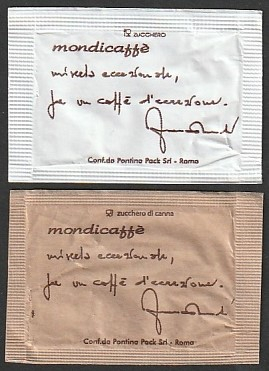 ZUCCHERO
mondicaffè
miscela eccezionale,
fa un caffè d'eccezione.
Conf.da Pontina Pack Srl - Roma
zucchero di canna
mondicaffè
miscela eccezionale,
fa un caffè d'eccezione.
Conf.da Pontina Pack Srl - Roma